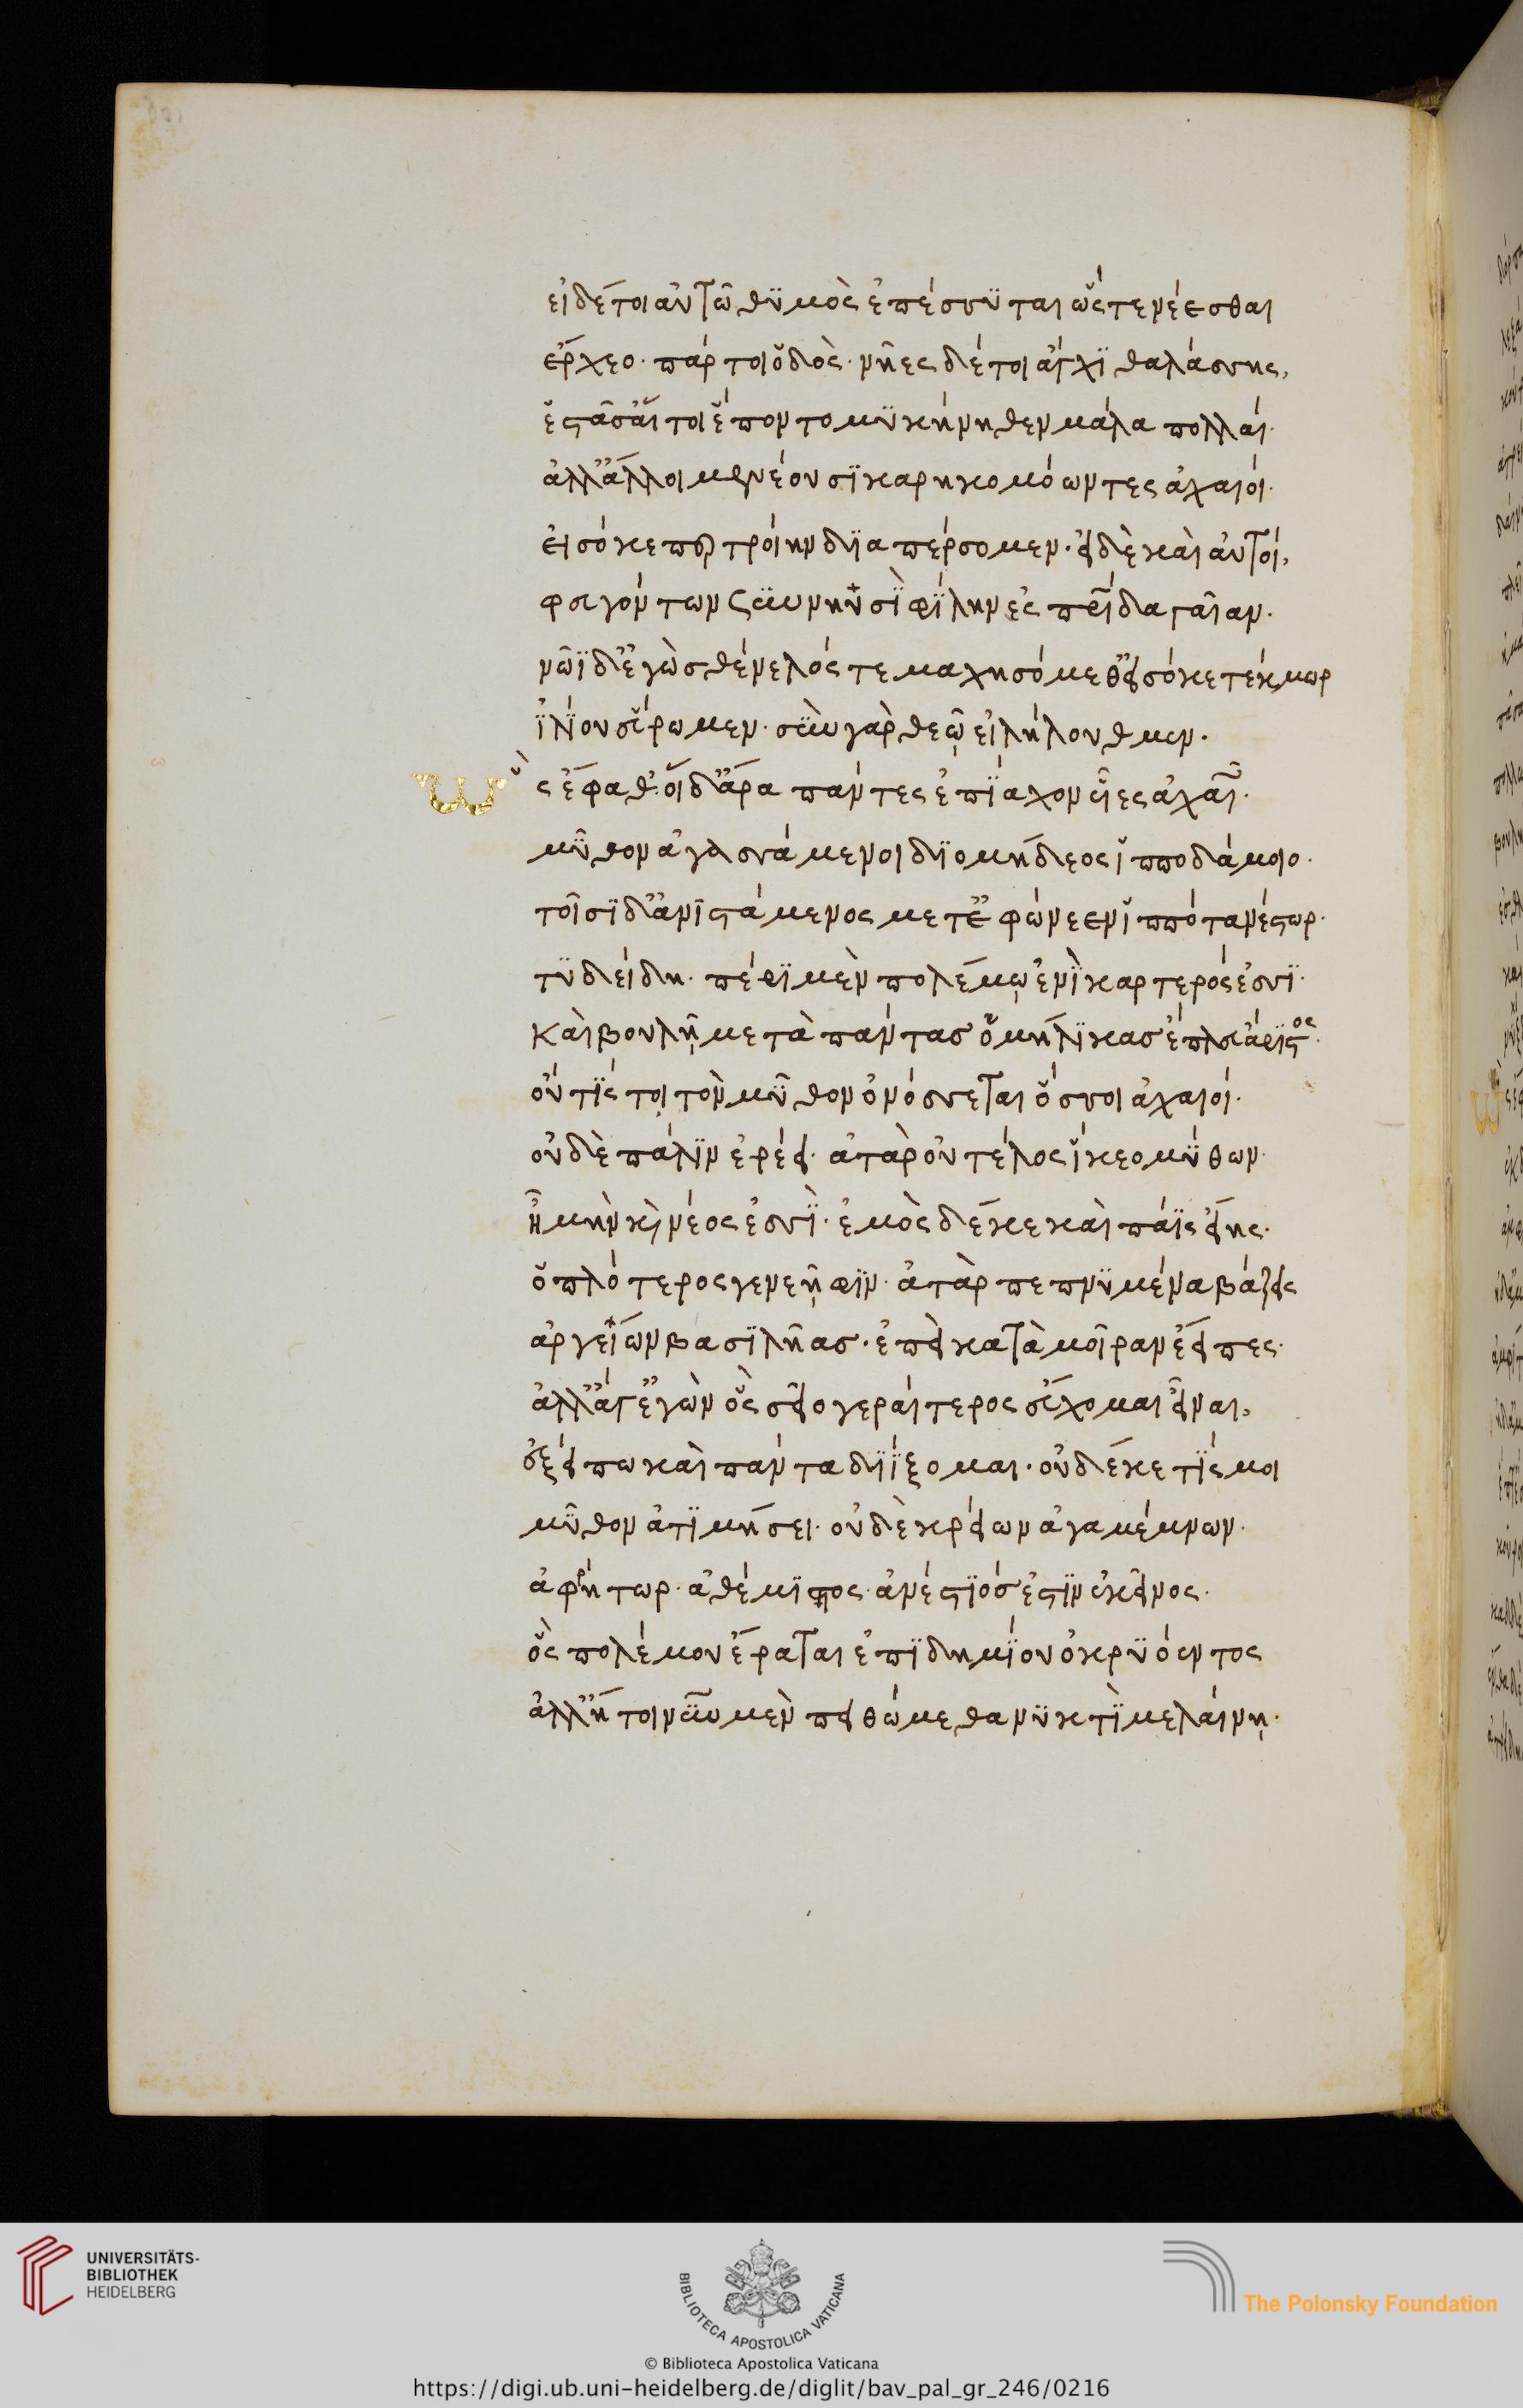 εἰ δέ τοι αὐτῶ θϋμὸς ἐπέσσϋται ὥς τε νέεσθαι
ἔρχεο· πάρ τοι ὁδὸς· νῆες δέ τοι ἄγχϊ θαλάσσης,
ἑστᾶσ' αἵ τοι ἕποντο μϋκήνηθεν μάλα πολλαί·
ἀλλ' ἄλλοι μενέουσϊ καρηκομόωντες ἀχαιοί·
εἰσόκε περ τροίην δϊαπέρσομεν· εἰ δὲ καὶ αὐτοί,
φευγόντων σὺν νηϋσὶ φίλην ἐς πατρίδα γαῖαν·
νῶϊ δ' ἐγὼ σθένελός τε μαχησόμεθ' εἰσόκε τέκμωρ
ἰλίου εὕρωμεν· σὺν γὰρ θεῶ εἰλήλουθμεν·
ὣς ἔφαθ' οἱ δ' ἄρα πάντες ἐπίαχον υἷες ἀχαιῶν·
μῦθον ἀγασσάμενοι δϊομήδεος ἱπποδάμοιο·
τοῖσϊ δ' ἀνιστάμενος μετεφώνεεν ἱππότα νέστωρ·
τϋδείδη· πέρϊ μὲν πολέμῳ ἔνι καρτερός ἐσσϊ·
καὶ βουλῇ μετὰ πάντας ὁμήλϊκας ἔπλευ ἄριστος·
οὔ τίς τοι τὸν μῦθον ὀνόσσεται ὅσσοι ἀχαιοί·
οὐδὲ πάλϊν ἐρέει· ἀτὰρ οὐ τέλος ἵκεο μύθων·
ἦ μὴν καὶ νέος ἐσσὶ· ἐμὸς δέ κε καὶ πάϊς εἴης·
ὁπλότερος γενεῇφϊν· ἀτὰρ πεπνϋμένα βάζεις
ἀργείων βασϊλῆας· ἐπεὶ κατὰ μοῖραν ἔειπες·
ἀλλ' ἄγ' ἐγὼν ὃς σεῖο γεραίτερος εὔχομαι εἶναι,
ἐξείπω καὶ πάντα δϊίξομαι· οὐδέ κε τίς μοι
μῦθον ἀτϊμήσει· οὐδὲ κρείων ἀγαμέμνων·
ἀφρήτωρ· ἀθέμϊστος· ἀνέστϊός ἐστϊν ἐκεῖνος·
ὃς πολέμου ἔραται ἐπϊδημίου ὀκρϋόεντος
ἀλλ' ἤτοι νῦν μὲν πειθώμεθα νϋκτὶ μελαίνῃ·
UNIVERSITÄTS-
BIBLIOTHEK
HEIDELBERG
BIBLIOTECA APOSTOLICA VATICANA
The Polonsky Foundation
© Biblioteca Apostolica Vaticana
https://digi.ub.uni-heidelberg.de/diglit/bav_pal_gr_246/0216